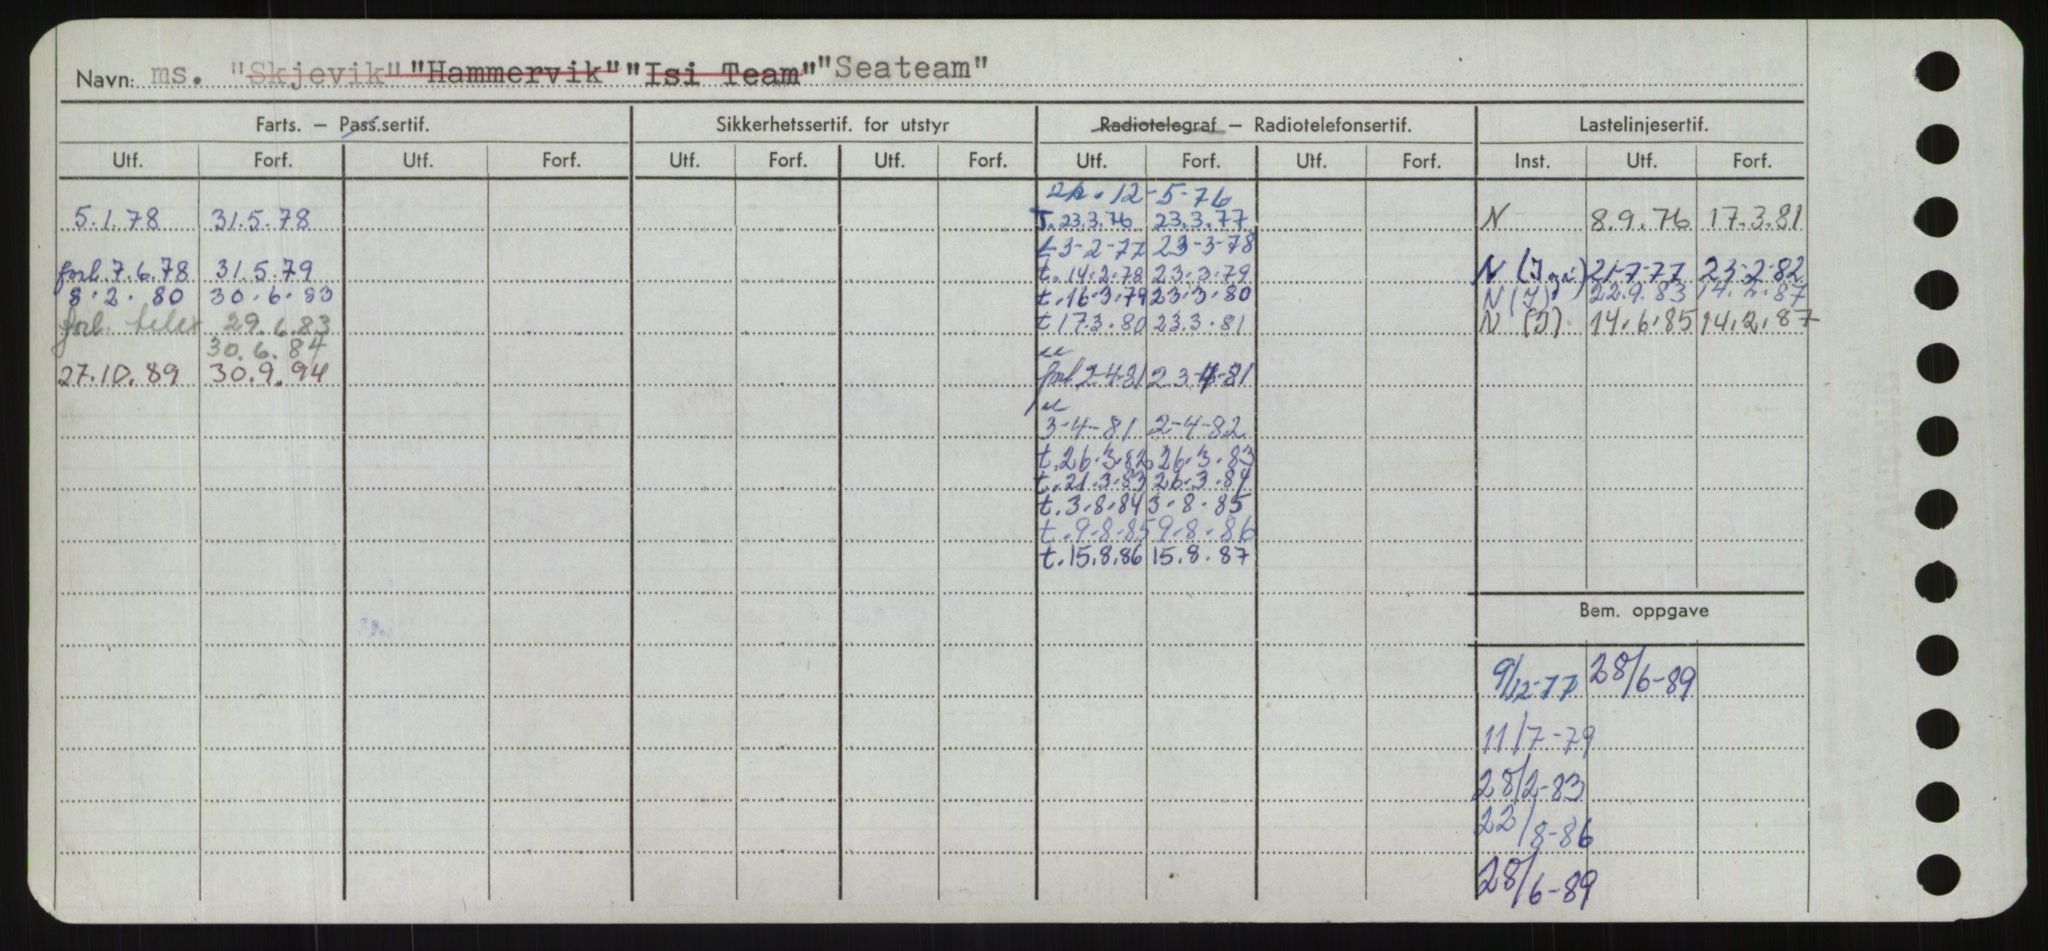 Navn: ms. "Skjevik" "Hammervik" "Isi Team" "Seateam"
Farts. — Pass.sertif. Sikkerhetssertif. for utstyr Radiotelegraf — Radiotelefonsertif. Lastelinjesertif.
Utf. Forf. Utf. Forf. Utf. Forf. Utf. Forf. Utf. Forf. Utf. Forf. Inst. Utf. Forf.
12-5-76
5.1.78 31.5.78 T. 23.3.76 23.3.77 N 8.9.76 17.3.81
3-2-77 23-3-78
forl. 7.6.78 31.5.79 t. 14.2.78 23.3.79 N 21-7-77 23-2-82
8.2.80 30.6.83 t. 16.3.79 23.3.80 N (I) 22.9.83 14.2.87
forl. 29.6.83 t 17.3.80 23.3.81 N (I) 14.6.85 14.2.87
30.6.84
27.10.89 30.9.94 forl 2-4-81 23-4-81
3-4-81 2-4-82
t. 26.3.82 26.3.83
t. 21.3.83 26.3.84
t. 3.8.84 3.8.85
t. 9.8.85 9.8.86
t. 15.8.86 15.8.87
Bem. oppgave
9/12-77 28/6-89
11/7-79
28/2-83
22/8-86
28/6-89